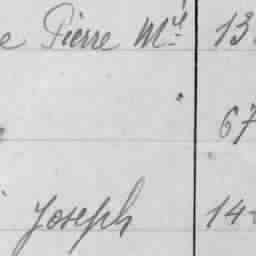 e Pierre My 13
67
Joseph 14